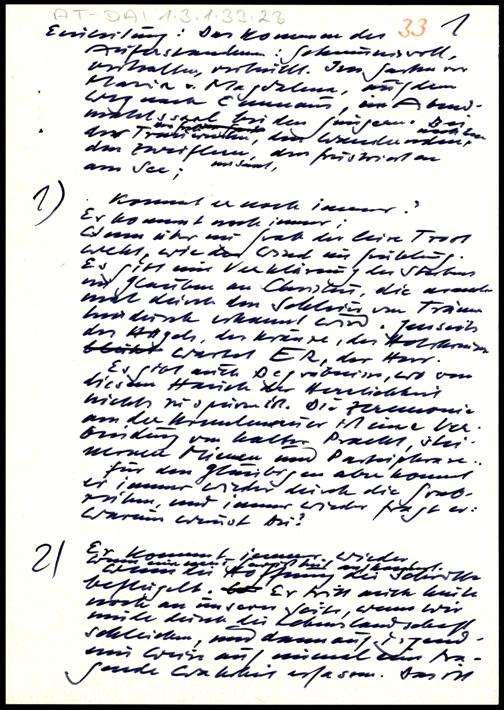 AT-DAI 1.3.1.33.23
33 1
Einleitung: Das Kommen des
Auferstandenen: geheimnisvoll,
verhalten, verhüllt. Im Garten vor
Maria v. Magdala, auf dem
Weg nach Emmaus, im Abend-
mahlssaal bei den Jüngern. Bei
der Trauernden, den Wandernden,
den Zweiflern, den frustrierten
am See;
1) Kommt er noch immer?
Er kommt noch immer;
Wenn über ein Grab der leise Trost
weht, wie der Wind im Frühling.
Es gibt eine Verklärung des Sterbens
im Glauben an Christus, die
mal durch den Schleier von Tränen
hindurch erkannt wird. Jenseits
des Hügels, der Kränze, des Holzkreuzes
wartet ER, der Herr.
Es gibt auch Begräbnisse, wo von
diesem Hauch der Herrlichkeit
nichts zu spüren ist. Die Zeremonie
an der ist eine Ver-
bindung von kalter Pracht,
nernen Mienen und
Für den Gläubigen aber kommt
er immer wieder durch die Grab-
reihen, und immer wieder fragt er:
Warum weinst Du?
2) Er kommt immer wieder
wenn die Hoffnung die Schritte
beflügelt. Er tritt auch heute
noch an unsere Seite, wenn wir
müde durch die Lebenslandschaft
schleichen, und dann auf irgend-
eine Weise auf einmal eine tra-
gende Wahrheit erfassen. Das ist